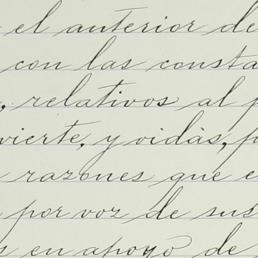 el anterior de
con las consta
, relativos al p
vierte, y oidas, p
razones que e
por voz de sus
s en apoyo de